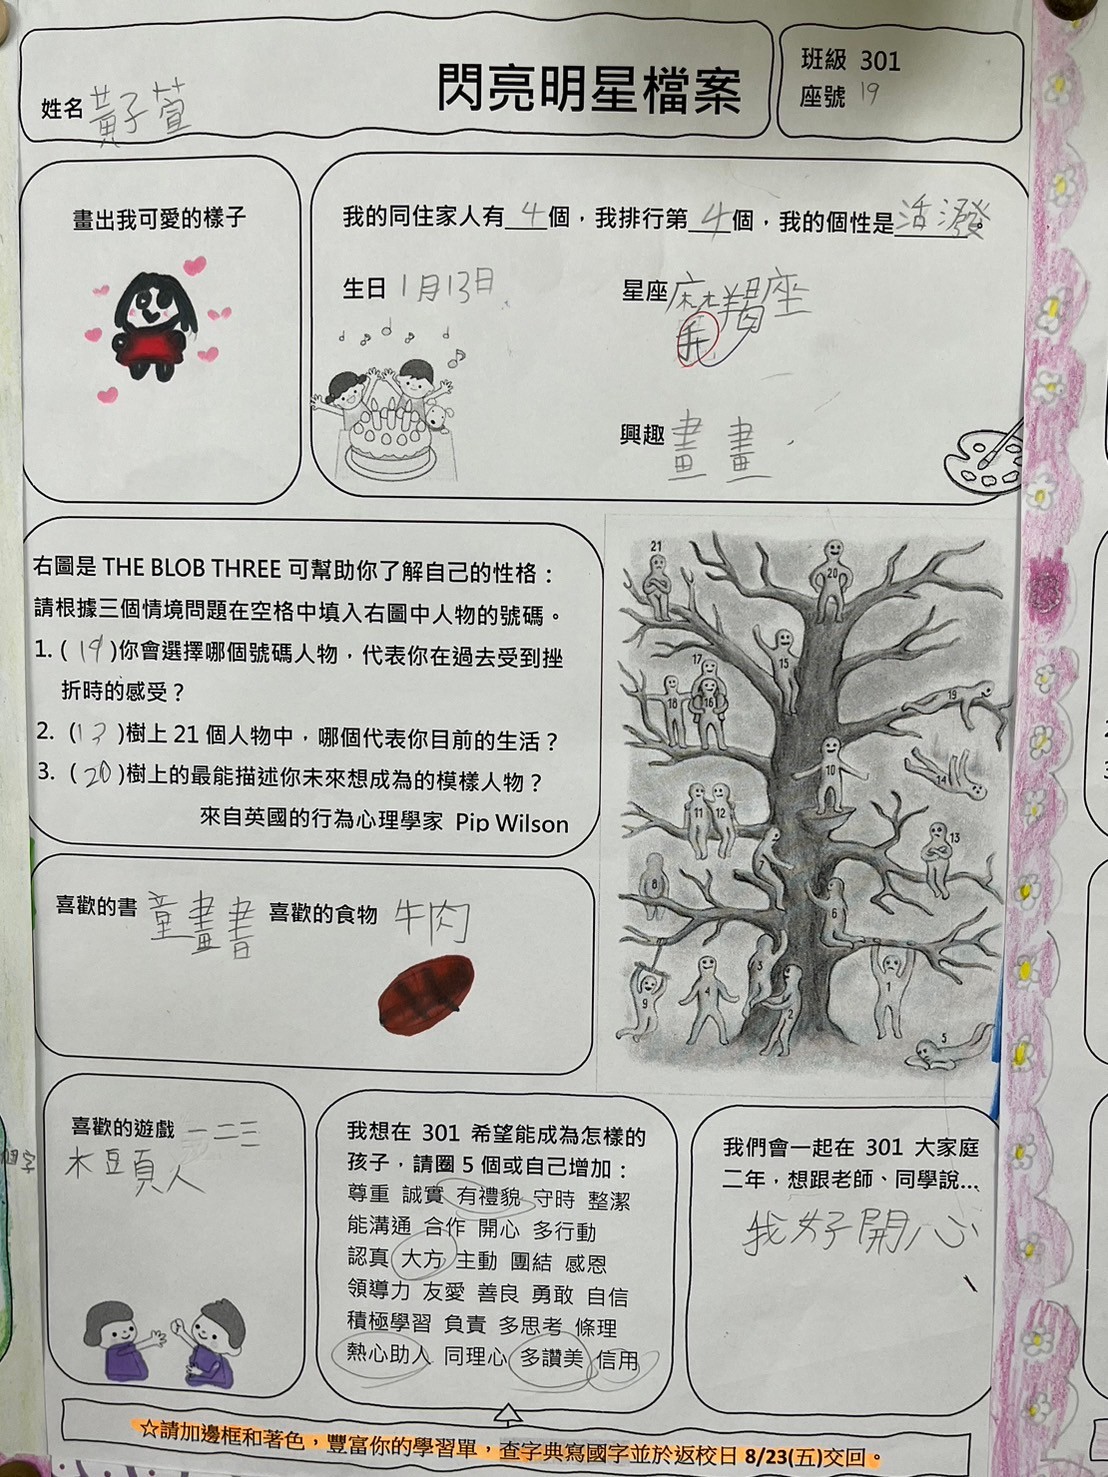 閃亮明星檔案
姓名 黃子萱
班級 301
座號 19
畫出我可愛的樣子
我的同住家人有 4 個，我排行第 4 個，我的個性是 活潑。
生日 1月13日
星座 摩羯座
手
興趣 畫畫
右圖是 THE BLOB THREE 可幫助你了解自己的性格：
請根據三個情境問題在空格中填入右圖中人物的號碼。
1. ( 19 )你會選擇哪個號碼人物，代表你在過去受到挫
折時的感受？
2. (13 )樹上 21 個人物中，哪個代表你目前的生活？
3. ( 20 )樹上的最能描述你未來想成為的模樣人物？
來自英國的行為心理學家 Pip Wilson
21
20
15
17
18
16
19
10
14
11
12
13
7
8
6
3
4
9
2
1
5
喜歡的書 童畫書 喜歡的食物 牛肉
喜歡的遊戲 一二三
木豆頁人
我想在 301 希望能成為怎樣的
孩子，請圈 5 個或自己增加：
尊重 誠實 有禮貌 守時 整潔
能溝通 合作 開心 多行動
認真 大方 主動 團結 感恩
領導力 友愛 善良 勇敢 自信
積極學習 負責 多思考 條理
熱心助人 同理心 多讚美 信用
我們會一起在 301 大家庭
二年，想跟老師、同學說…
我好開心
☆請加邊框和著色，豐富你的學習單，查字典寫國字並於返校日 8/23(五)交回。